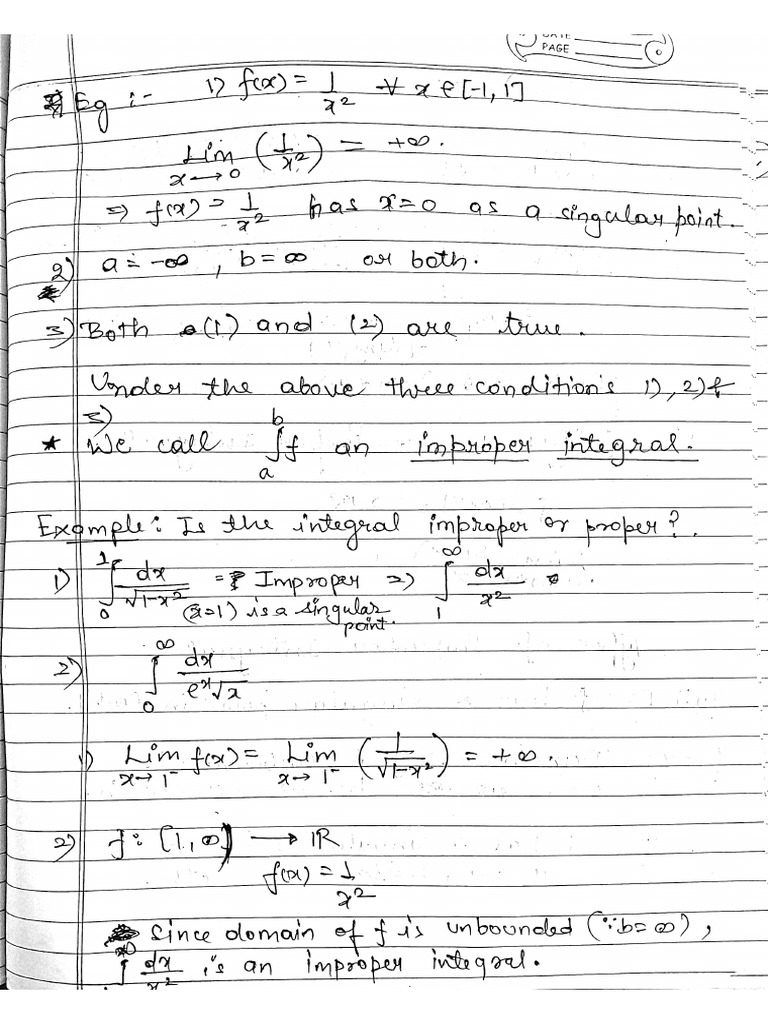 DATE
PAGE
Eg :- 1) f(x) = 1/x² ∀ x ∈ [-1, 1]
Lim x→0 (1/x²) = +∞.
⇒ f(x) = 1/x² has x=0 as a singular point.
2) a = -∞, b = ∞ or both.
3) Both (1) and (2) are true.
Under the above three condition's 1), 2) &
3)
* We call ∫ₐᵇ f an improper integral.
Example: Is the integral improper or proper?
1) ∫₀¹ dx/√(1-x²) = Improper ⇒ ∫₁^∞ dx/x²
(x=1) is a singular
point.
2) ∫₀^∞ dx/(eˣ√x)
1) Lim x→1⁻ f(x) = Lim x→1⁻ (1/√(1-x²)) = +∞.
2) f: [1, ∞) → IR
f(x) = 1/x²
Since domain of f is unbounded (∵ b=∞),
∫^∞ dx/x² is an improper integral.